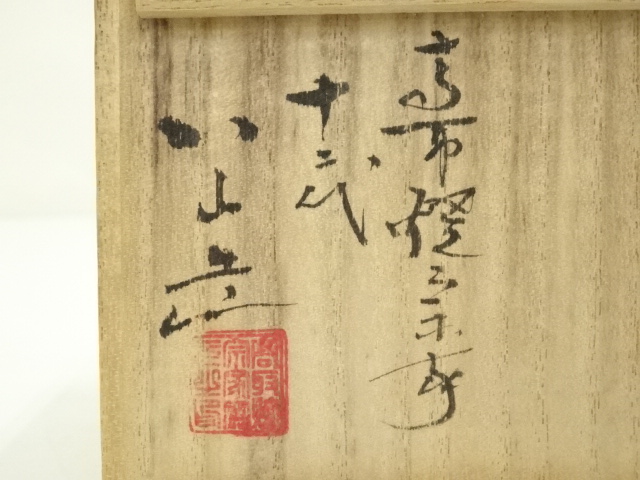 高取焼宗家
十二代
八山造